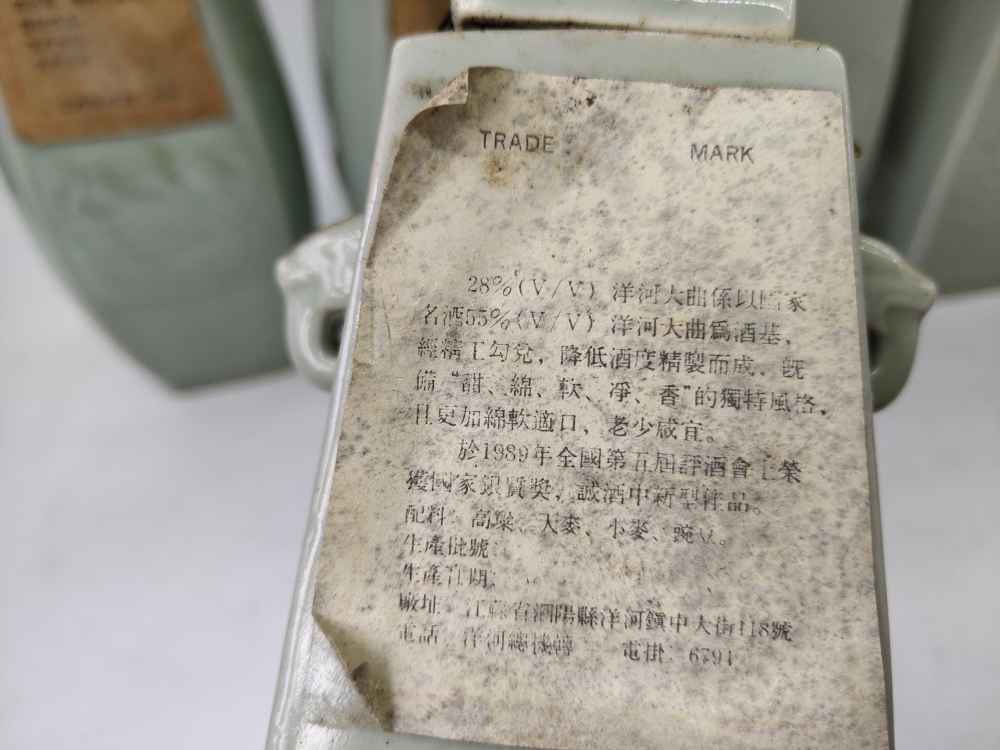 TRADE MARK
28%(V/V) 洋河大曲係以 家
名酒55%(V/V) 洋河大曲爲酒基,
經精工勾兌, 降低酒度精製而成, 既
備“甜、綿、軟、凈、香”的獨特風格,
且更加綿軟適口、老少咸宜。
於1989年全國第五屆評酒會上榮
獲國家銀質獎, 誠酒中新型佳品。
配料: 高粱、大麥、小麥、豌豆。
生產批號:
生產日期:
廠址: 江蘇省泗陽縣洋河鎮中大街118號
電話: 洋河總機轉 電掛: 6791